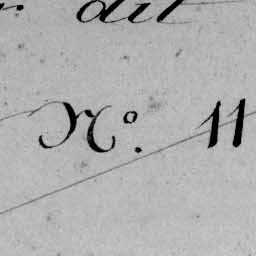 dit
N°. 11